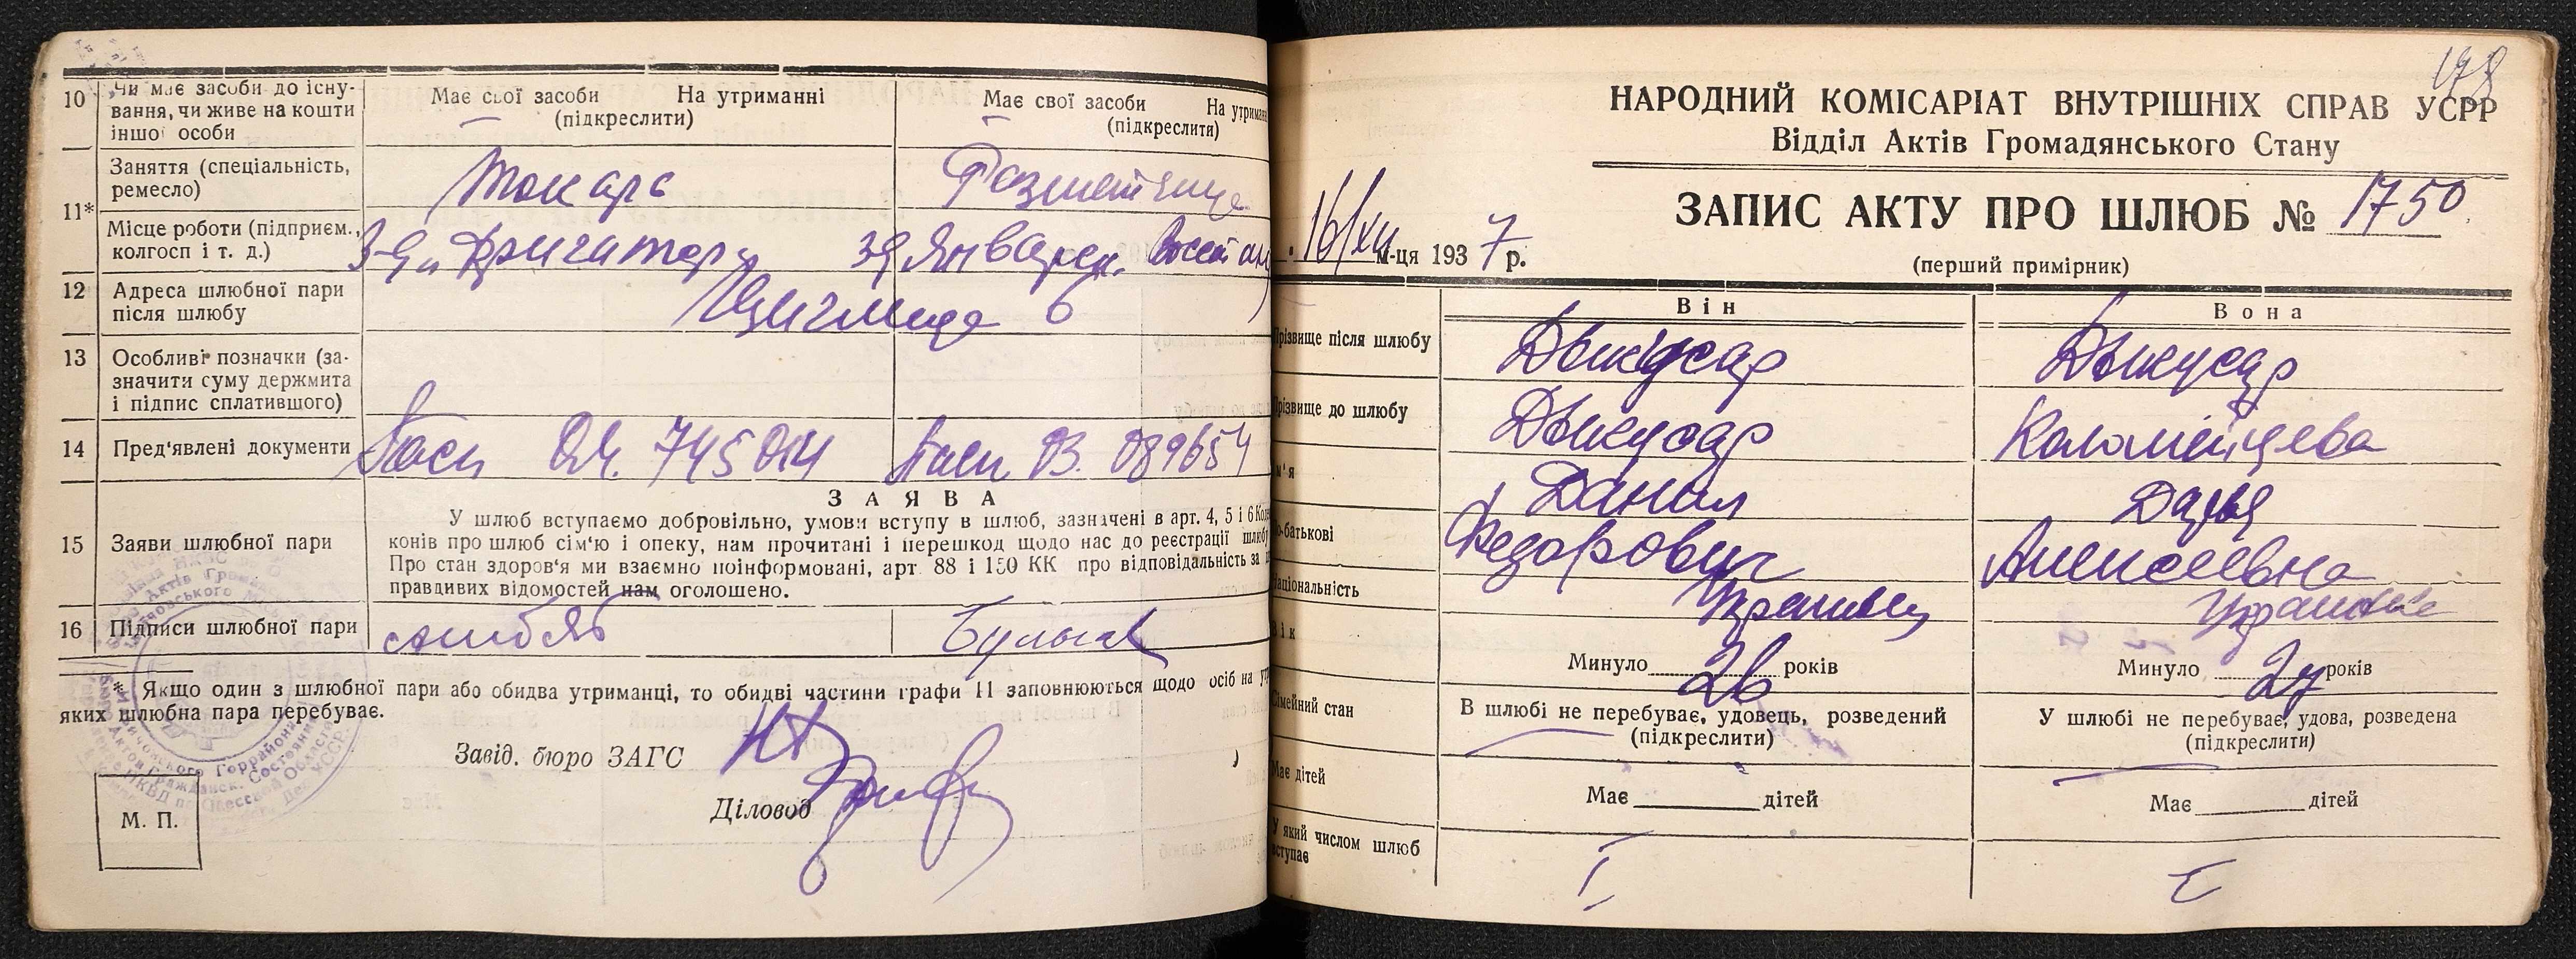 10 Чи має засоби до існу-
вання, чи живе на кошти
іншої особи
Має свої засоби На утриманні
(підкреслити)
Має свої засоби На утриман
(підкреслити)
11*
Заняття (спеціальність,
ремесло)
Токарь
Розметчица
Місце роботи (підприєм.,
колгосп і т. д.)
12 Адреса шлюбної пари
після шлюбу
6
13 Особливі позначки (за-
значити суму держмита
і підпис сплатившого)
14 Пред'явлені документи
745014
089654
ЗАЯВА
15 Заяви шлюбної пари
У шлюб вступаємо добровільно, умови вступу в шлюб, зазначені в арт. 4, 5 і 6
конів про шлюб сім'ю і опеку, нам прочитані і перешкод щодо нас до реєстрації шлюбу
Про стан здоров'я ми взаємно поінформовані, арт. 88 і 150 КК про відповідальність за
правдивих відомостей нам оголошено.
16 Підписи шлюбної пари
* Якщо один з шлюбної пари або обидва утриманці, то обидві частини графи 11 заповнюються щодо осіб на
яких шлюбна пара перебуває.
Завід. бюро ЗАГС
Діловод
М. П.
178
НАРОДНИЙ КОМІСАРІАТ ВНУТРІШНІХ СПРАВ УСРР
Відділ Актів Громадянського Стану
ЗАПИС АКТУ ПРО ШЛЮБ № 1750
16/XII м-ця 1937 р.
(перший примірник)
Він
Вона
Прізвище після шлюбу
Дыкусар
Дыкусар
Прізвище до шлюбу
Дыкусар
Коломейцева
м'я
Данил
Дарья
о-батькові
Федорович
Алексеевна
Національність
Украинец
Вік
Минуло 26 років
Минуло 27 років
Сімейний стан
В шлюбі не перебуває, удовець, розведений
(підкреслити)
У шлюбі не перебуває, удова, розведена
(підкреслити)
Має дітей
Має дітей
Має дітей
У який числом шлюб
вступає
I